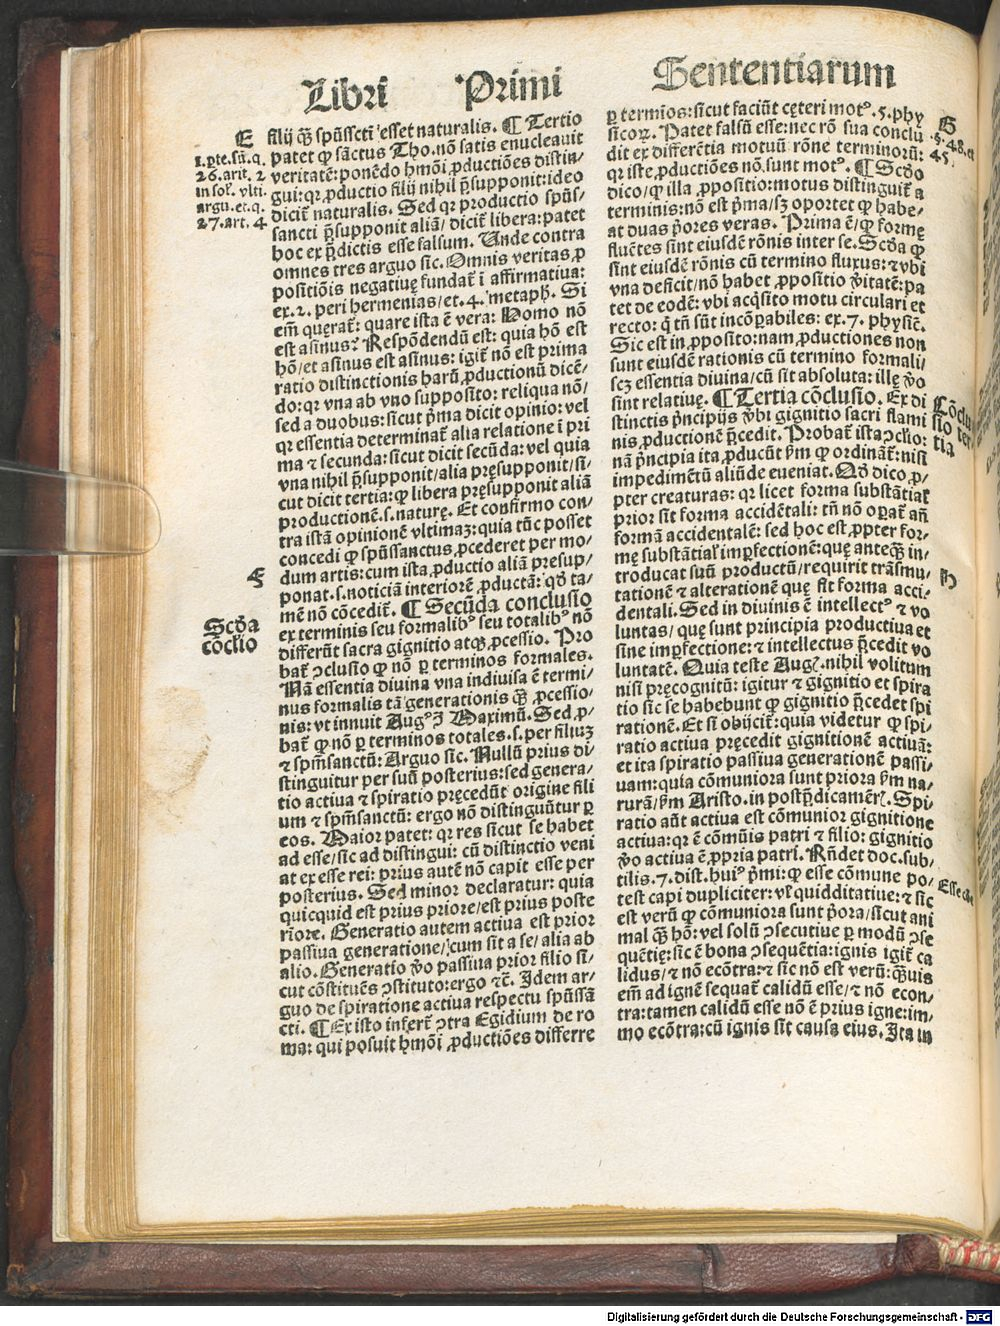 Libri Primi Sententiarum
E
1.ꝑte.sū.q.
26.arti. 2
in sol᷒. vlti.
argu.et.q.
27.art. 4
filij q̄ꝫ spūsscti esset naturalis. ¶ Tertio
patet ꝙ sāctus Tho. nō satis enucleauit
veritatē: ponēdo hmōi ꝓductiões distin-
gui: qꝛ ꝓductio filij nihil p̄supponit: ideo
dicit̄ naturalis. Sed qꝛ productio spūs/
sancti p̄supponit aliā/ dicit̄ libera: patet
hoc ex p̄dictis esse falsum. Unde contra
omnes tres arguo sic. Omnis veritas ꝓ
positiōis negatiuę fundat̄ ī affirmatiua:
ex. 2. peri hermenias/et. 4. metaph. Si
em̄ querat̄: quare ista ē vera: Homo nō
est asinus? Respōdendū est: quia hō est
hō/et asinus est asinus: igit̄ nō est prima
ratio distinctionis harū ꝓductionū dicē/
do: qꝛ vna ab vno supposito: reliqua nō/
sed a duobus: sicut p̄ma dicit opinio: vel
qꝛ essentia determinat̄ alia relatione ī pri
ma ⁊ secunda: sicut dicit secūda: vel quia
vna nihil p̄supponit/alia pręsupponit/si/
cut dicit tertia: ꝙ libera pręsupponit aliā
productionē.s.naturę. Et confirmo con/
tra istā opinionē vltimaꝫ: quia tūc posset
concedi ꝙ spūssanctus ꝓcederet per mo/
F
dum artis: cum ista ꝓductio aliā presup/
ponat.s.noticiā interiorē ꝓductā: qd̄ ta/
Scd̄a
cōclio
mē nō cōcedit̄. ¶ Secūda conclusio
ex terminis seu formalibꝰ seu totalibꝰ nō
differūt sacra gignitio atqꝫ ꝓcessio. Pro
bat̄ ↄclusio ꝙ nō ꝑ terminos formales.
Nā essentia diuina vna indiuisa ē termi/
nus formalis tā generationis q̄ꝫ ꝓcessio/
nis: vt innuit Augꝰ.3. Maximū. Sed ꝓ/
bat̄ ꝙ nō ꝑ terminos totales.s. per filiuꝫ
⁊ spm̄sanctū: Arguo sic. Nullū prius di/
stinguitur per suū posterius: sed genera/
tio actiua ⁊ spiratio pręcedūt origine fili
um ⁊ spm̄sanctū: ergo nō distinguūtur ꝑ
eos. Maior patet: qꝛ res sicut se habet
ad esse/sic ad distingui: cū distinctio veni
at ex esse rei: prius autē nō capit esse per
posterius. Sed minor declaratur: quia
quicquid est prius priore/est prius poste
riore. Generatio autem actiua est prior
passiua generatione/cum sit a se/ alia ab
alio. Generatio v̄o passiua prior filio si/
cut cōstituēs ↄstituto: ergo ⁊c̄. Idem ar/
guo de spiratione actiua respectu spūssā
cti. ¶ Ex isto infert̄ ↄtra Egidium de ro
ma: qui posuit hmōi ꝓductiões differre
ꝑ termīos: sicut faciūt cęteri motꝰ. 5. phy
sicoꝝ. Patet falsū esse: nec rō sua conclu
dit ex differētia motuū rōne terminorū:
qꝛ iste ꝓductiões nō sunt motꝰ. ¶ Scd̄o
G
.q.48.et
45.
dico/ꝙ illa ꝓpositio: motus distinguit̄ a
terminis: nō est p̄ma/sꝫ oportet ꝙ habe/
at duas p̄ores veras. Prima ē/ꝙ formę
fluētes sint eiusdē rōnis inter se. Scd̄a ꝙ
sint eiusdē rōnis cū termino fluxus: ⁊ vbi
vna deficit/nō habet ꝓpositio v̄itatē: pa
tet de eodē: vbi acq̄sito motu circulari et
recto: q̄ tn̄ sūt incōꝑabiles: ex. 7. physic̄.
Sic est in ꝓposito: nam ꝓductiones non
sunt eiusdē rationis cū termino formali/
scꝫ essentia diuina/cū sit absoluta: illę v̄o
Cōclu
sio ter
tia
sint relatiuę. ¶ Tertia cōclusio. Ex di
stinctis p̄ncipijs v̄bi gignitio sacri flami
nis ꝓductionē p̄cedit. Probat̄ ista ↄclio:
nā p̄ncipia ita ꝓducūt ẜm ꝙ ordinātur: nisi
impedimētū aliūde eueniat. Qd̄ dico ꝓ/
pter creaturas: qꝛ licet forma substātial᷒
prior sit forma accidētali: tn̄ nō oꝑat̄ an̄
formā accidentalē: sed hoc est ꝓpter for/
mę substātial᷒ imꝑfectionē: quę anteq̄ꝫ in/
H
troducat suū productū/requirit trāsmu/
tationē ⁊ alterationē quę fit forma acci/
dentali. Sed in diuinis ē intellectꝰ ⁊ vo
luntas/ quę sunt principia productiua et
sine imꝑfectione: ⁊ intellectus p̄cedit vo
luntatē. Quia teste Aug᷒. nihil volitum
nisi pręcognitū: igitur ⁊ gignitio et spira
tio sic se habebunt ꝙ gignitio p̄cedet spi
rationē. Et si obijcit̄: quia videtur ꝙ spi/
ratio actiua pręcedit gignitionē actiuā:
et ita spiratio passiua generationē passi/
uam: quia cōmuniora sunt priora ẜm na/
turā/ẜm Aristo. in postp̄dicamēt᷒. Spi/
ratio aūt actiua est cōmunior gignitione
actiua: qꝛ ē cōmūis patri ⁊ filio: gignitio
v̄o actiua ē ꝓpria patri. Rn̄det doc. sub/
tilis. 7. dist. huiꝰ p̄mi: ꝙ esse cōmune po/
Esse cōe
test capi dupliciter: vl᷒ quidditatiue: ⁊ sic
est verū ꝙ cōmuniora sunt p̄ora/sicut ani
mal q̄ꝫ hō: vel solū ↄsecutiue ꝑ modū ↄse
quētię: sic ē bona ↄsequētia: ignis igit̄ ca
lidus/⁊ nō ecōtra: ⁊ sic nō est verū: q̄ꝫuis
em̄ ad ignē sequat̄ calidū esse/⁊ nō econ/
tra: tamen calidū esse nō ē prius igne: im/
mo ecōtra: cū ignis sit causa eius. Ita in
Digitalisierung gefördert durch die Deutsche Forschungsgemeinschaft - DFG